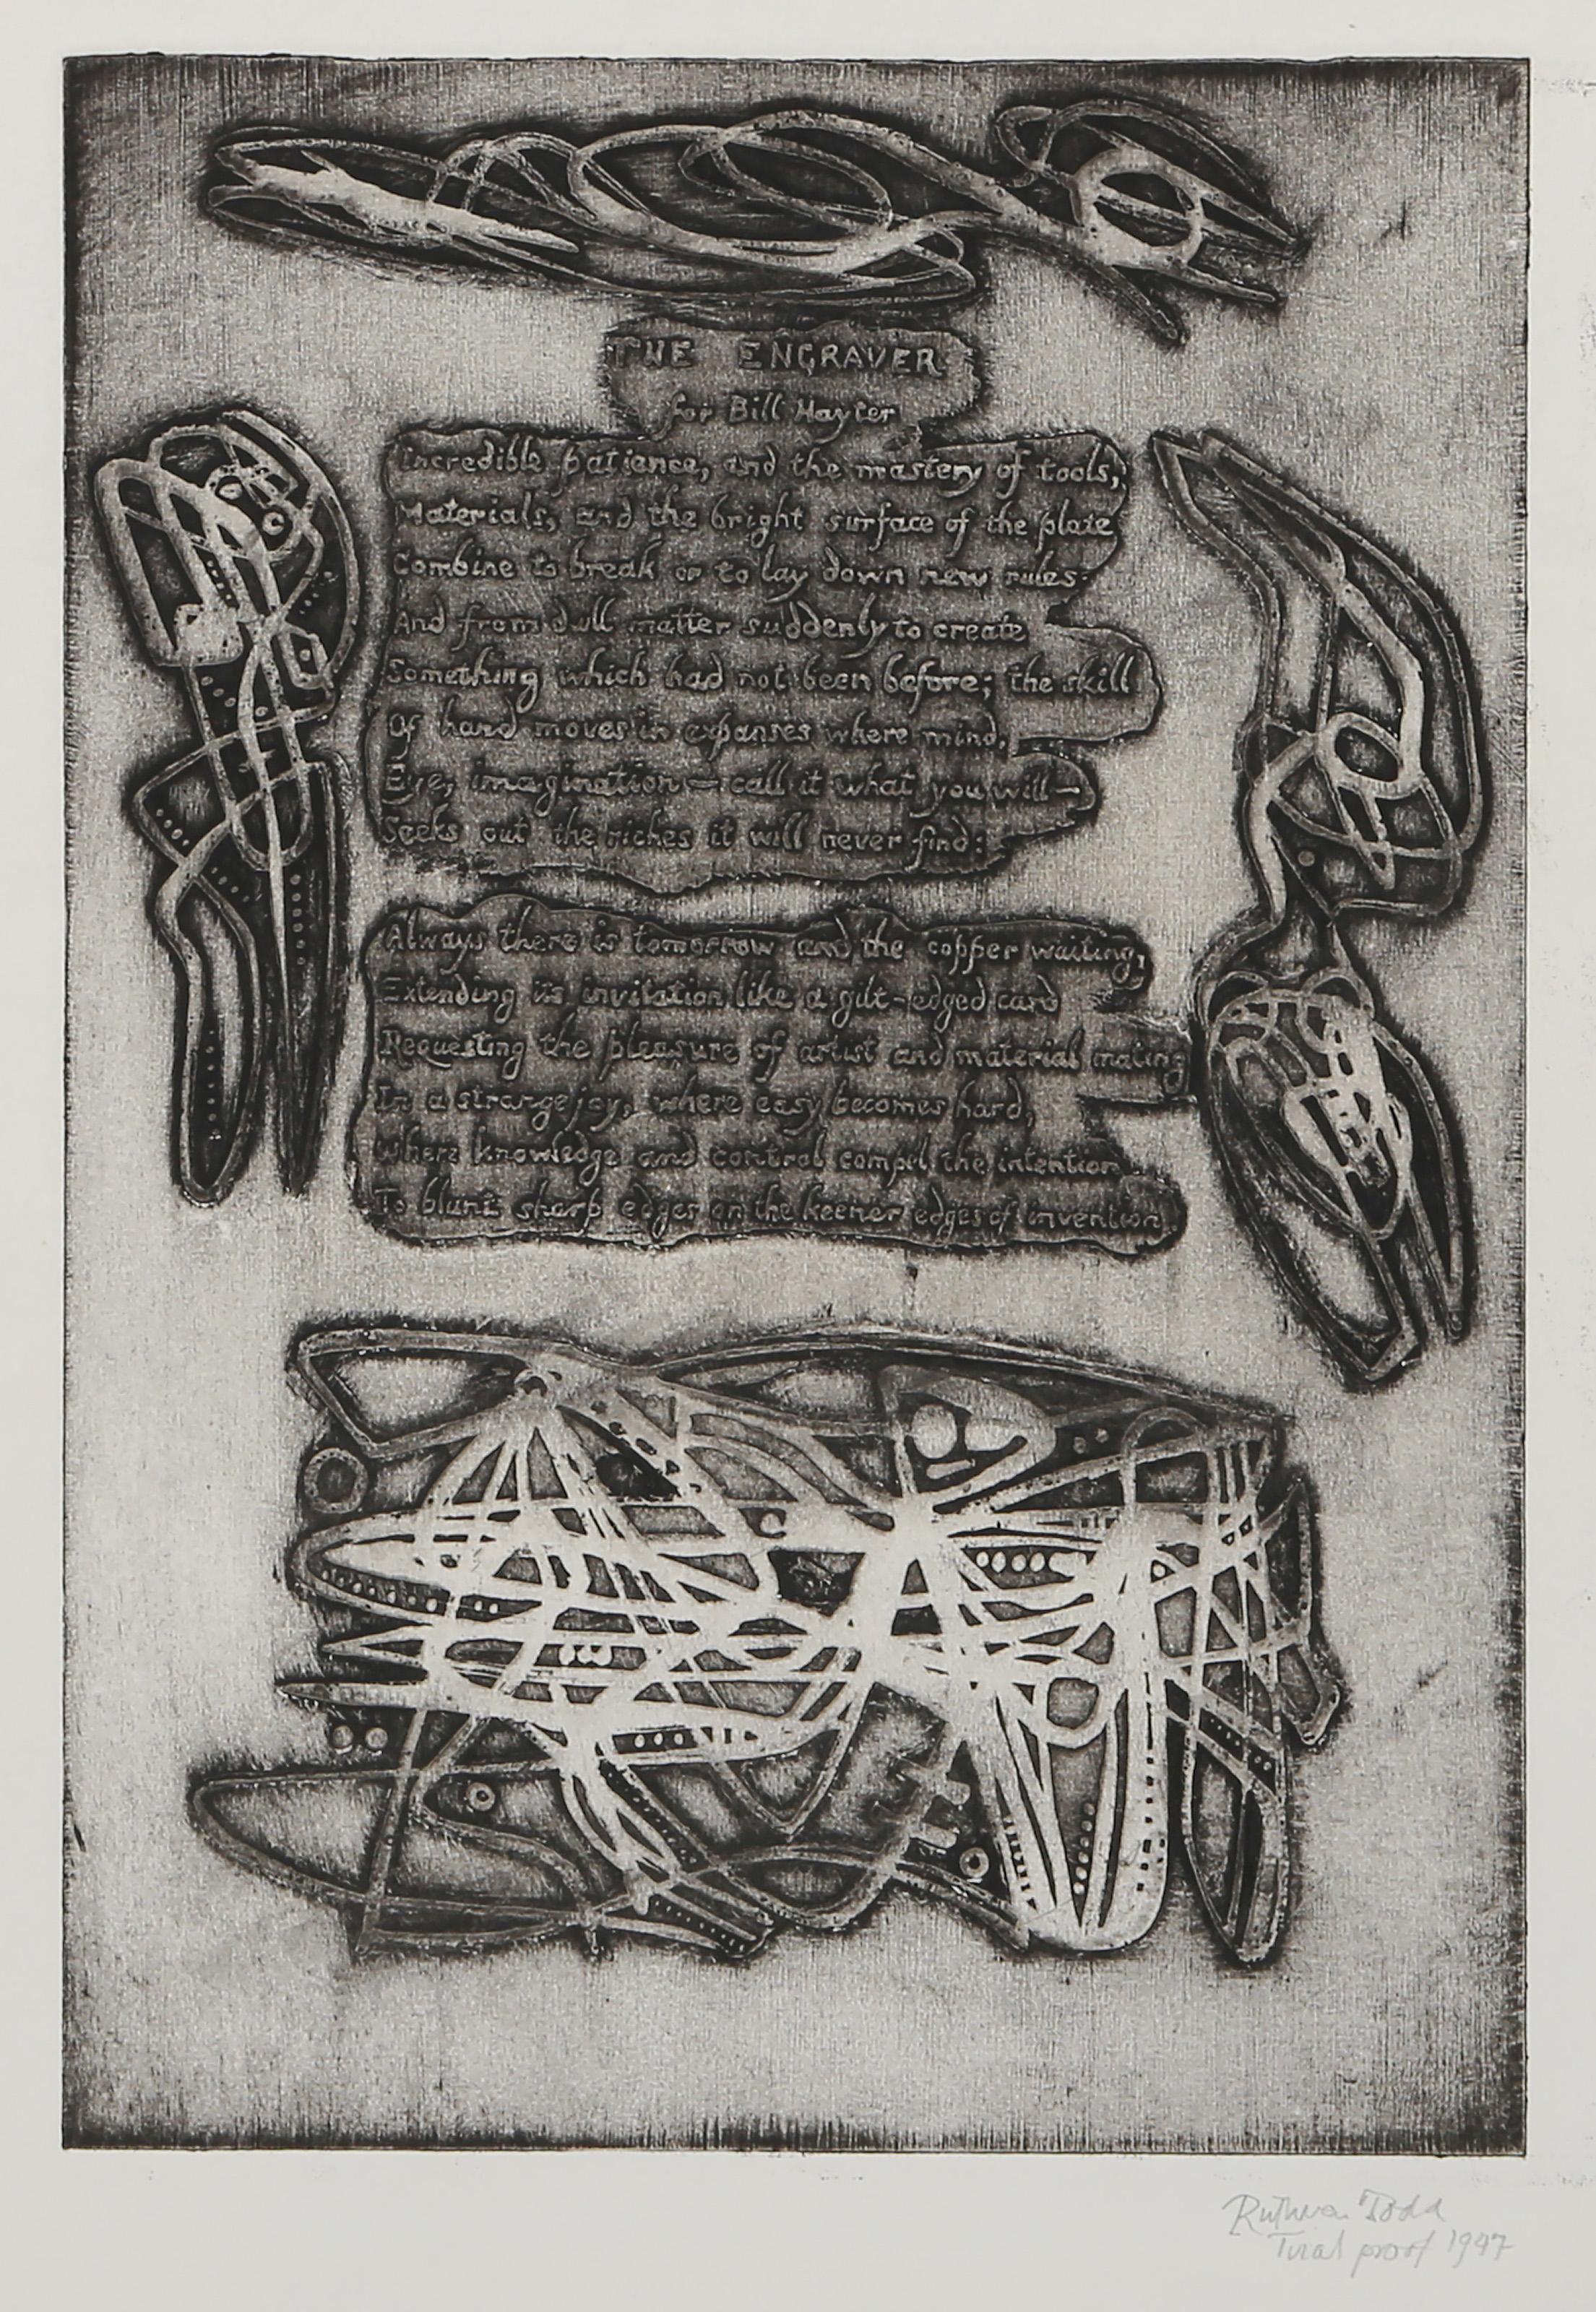 THE ENGRAVER
for Bill Hayter
Incredible patience, and the mastery of tools,
Materials, and the bright surface of the plate
Combine to break or to lay down new rules:
And from dull matter suddenly to create
Something which had not been before; the skill
Of hand moves in expanses where mind,
Eye, imagination — call it what you will —
Seeks out the riches it will never find:
Always there is tomorrow and the copper waiting,
Extending its invitation like a gilt-edged card
Requesting the pleasure of artist and material mating
In a strange joy, where easy becomes hard,
Where knowledge and control compel the intention
To blunt sharp edges on the keener edges of invention.
Ruthven Todd
Trial proof 1947